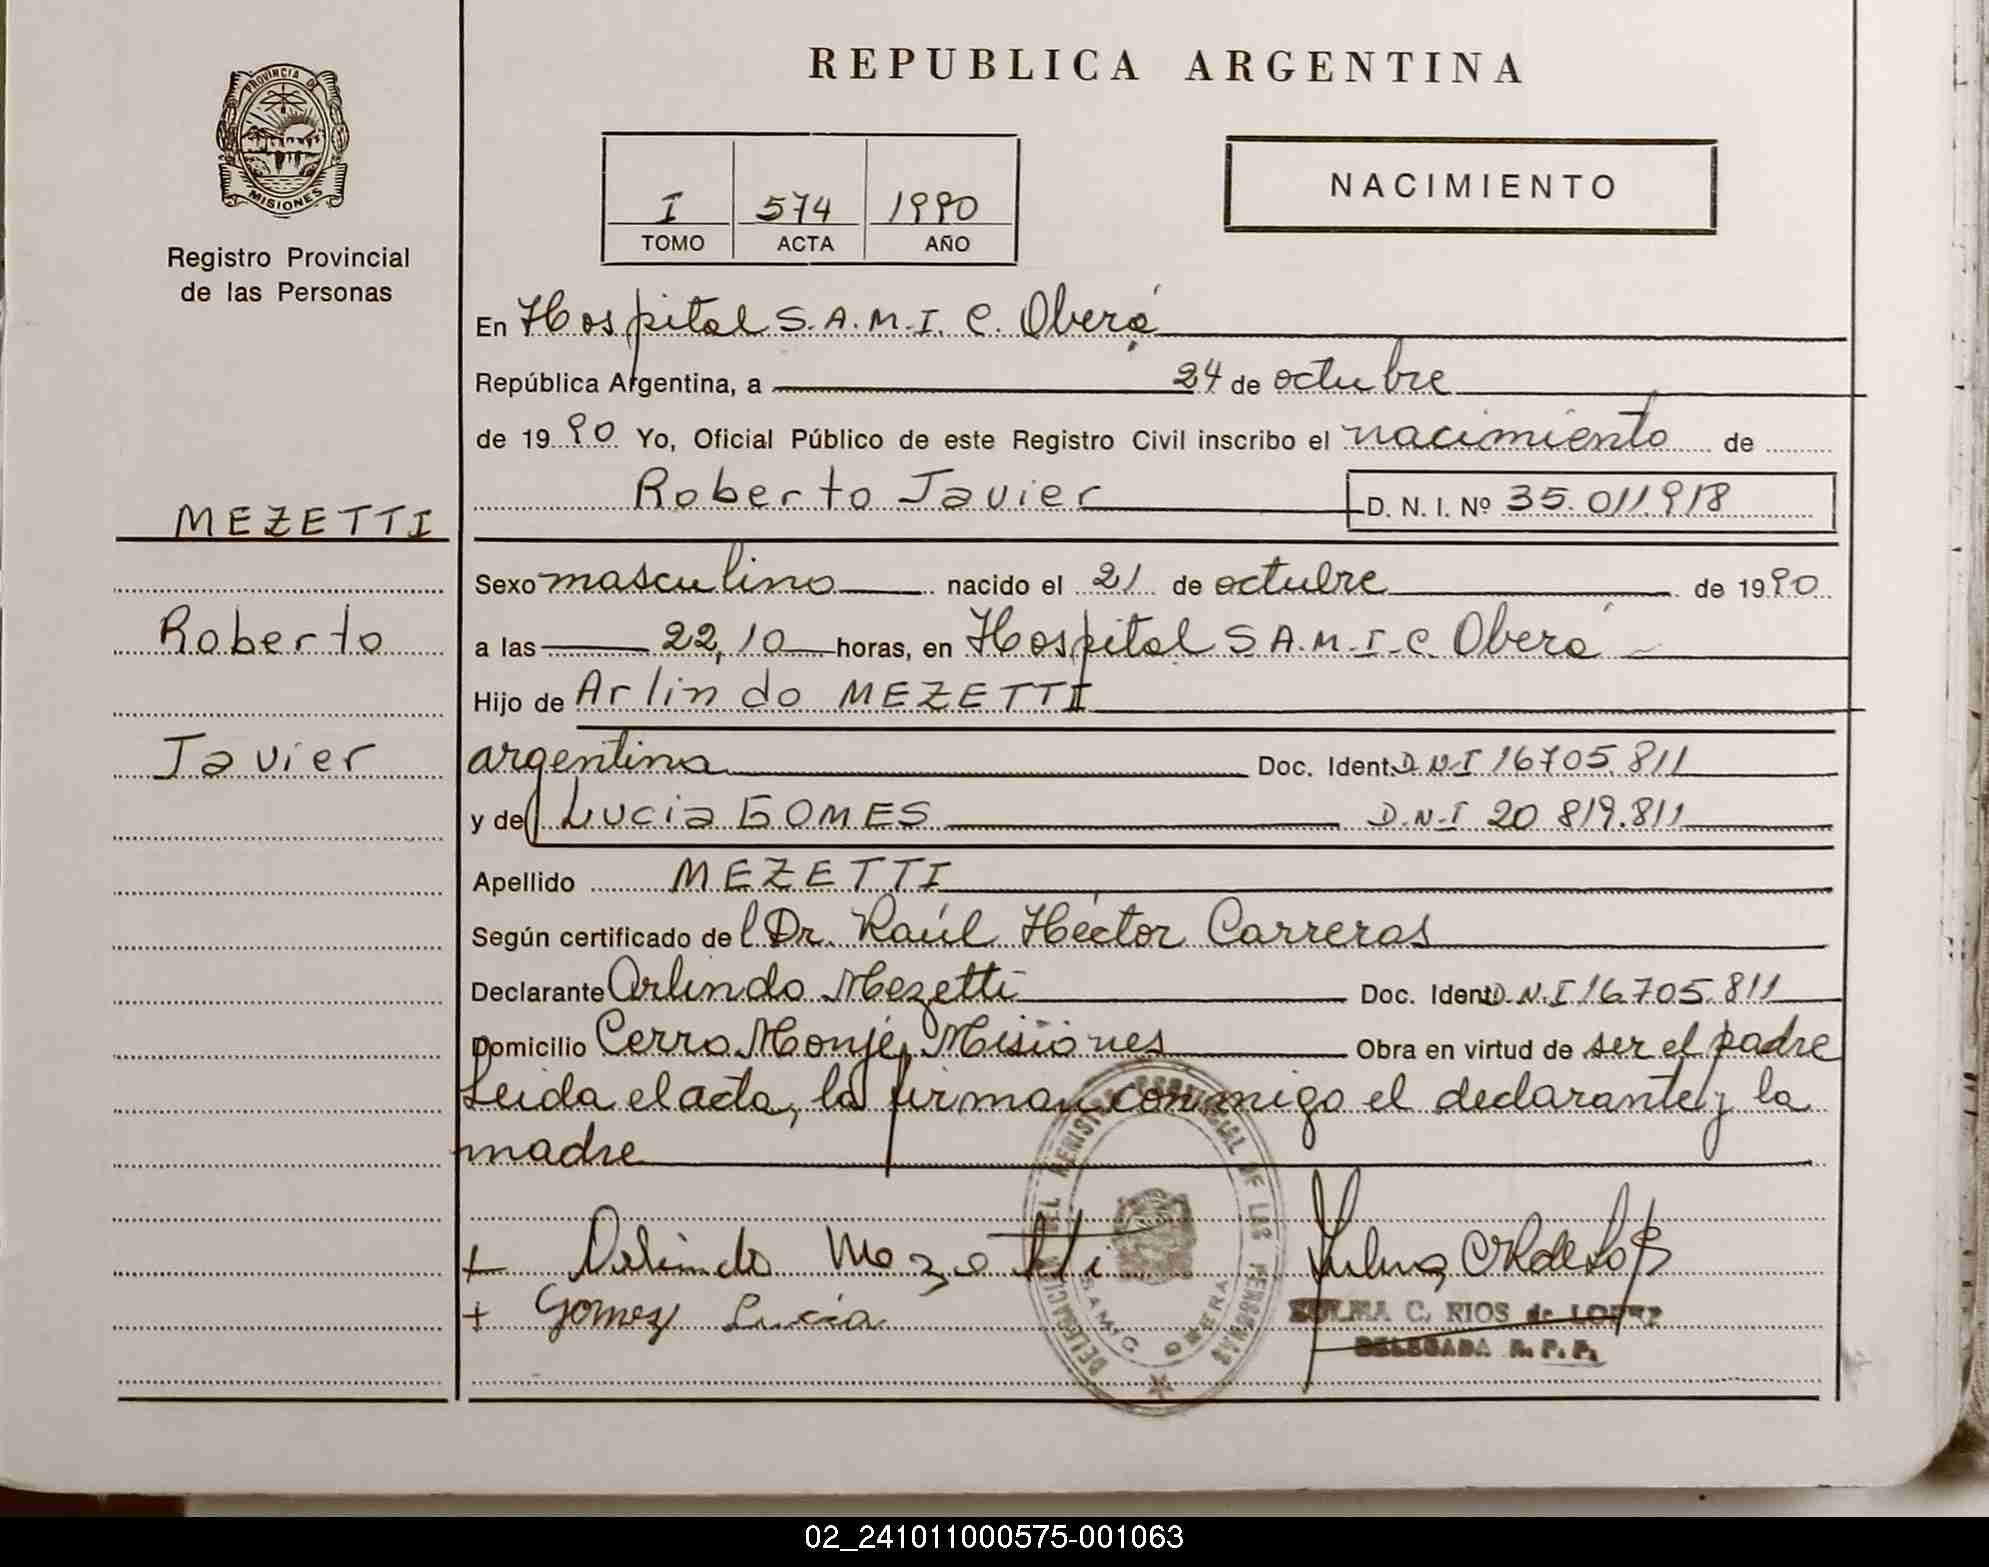 REPUBLICA ARGENTINA
PROVINCIA DE
MISIONES
Registro Provincial
de las Personas
I 574 1990
TOMO ACTA AÑO
NACIMIENTO
En Hospital S.A.M.I.C. Oberá
República Argentina, a 24 de octubre
de 1990 Yo, Oficial Público de este Registro Civil inscribo el nacimiento de
Roberto Javier D. N. I. Nº 35.011.918
MEZETTI
Roberto
Javier
Sexo masculino nacido el 21 de octubre de 1990
a las 22,10 horas, en Hospital S.A.M.I.C. Oberá
Hijo de Arlindo MEZETTI
argentina Doc. Ident. D.N.I 16.705.811
y de Lucia GOMES D.N.I 20.819.811
Apellido MEZETTI
Según certificado del Dr. Raúl Héctor Carreras
Declarante Arlindo Mezetti Doc. Ident. D.N.I 16.705.811
Domicilio Cerro Monje, Misiones Obra en virtud de ser el padre
Leida el acta, la firman conmigo el declarante y la
madre
+ Arlindo Mezetti
+ Gomez Lucia
DELEGACION DEL REGISTRO PROVINCIAL DE LAS PERSONAS
SAMIC OBERA
ZULMA C. RIOS de LOPEZ
DELEGADA R. P. P.
02_241011000575-001063